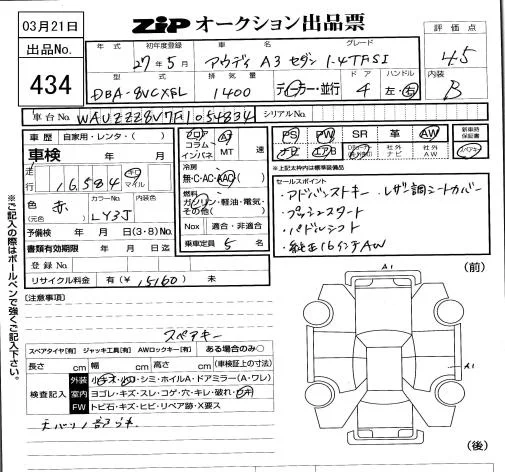 03月21日
ZIP オークション出品票
出品No.
434
年式 初年度登録 車名 グレード
27年5月 アウディ A3 セダン 1.4TFSI
型式 排気量 ドア ハンドル
DBA-8VCXSL 1400 ディーラー・並行 4 左・右
評価点
4.5
内装
B
車台No. WAUZZZ8V7F1054834 シリアルNo.
車歴 自家用・レンタ・( )
車検 年 月
走行 16,584 キロ マイル
色 赤 カラーNo. LY3J 内装色
(元色)
予備検 年 月 日(3・8)No.
書類有効期限 年 月 日迄
登録No.
リサイクル料金 有(¥ 15160 ) 未
フロア コラム インパネ
AT MT 速
冷房
無・C・AC・AAC
燃料
ガソリン・軽油・電気・その他( )
Nox 適合・非適合
乗車定員 5 名
PS PW SR 革 AW
ナビ エアB 社外ナビ 社外AW
新車時保証書
※上記太枠内は標準装備品
セールスポイント
・アドバンストキー・レザー調シートカバー
・プッシュスタート
・パドルシフト
・純正16インチAW
※ご記入の際はボールペンで強くご記入下さい。
(注意事項)
スペアキー
スペアタイヤ[有] ジャッキ工具[有] AWロックキー[有] ある場合のみ○
長さ cm 幅 cm 高さ cm (車検証上の寸法)
検査記入
外装 小キズ・凹・シミ・ホイルA・ドアミラー(A・ワレ)
室内 ヨゴレ・キズ・スレ・コゲ・穴・キレ・破れ・
FW トビ石・キズ・ヒビ・リペア跡・X要ス
A1
(前)
A1
(後)